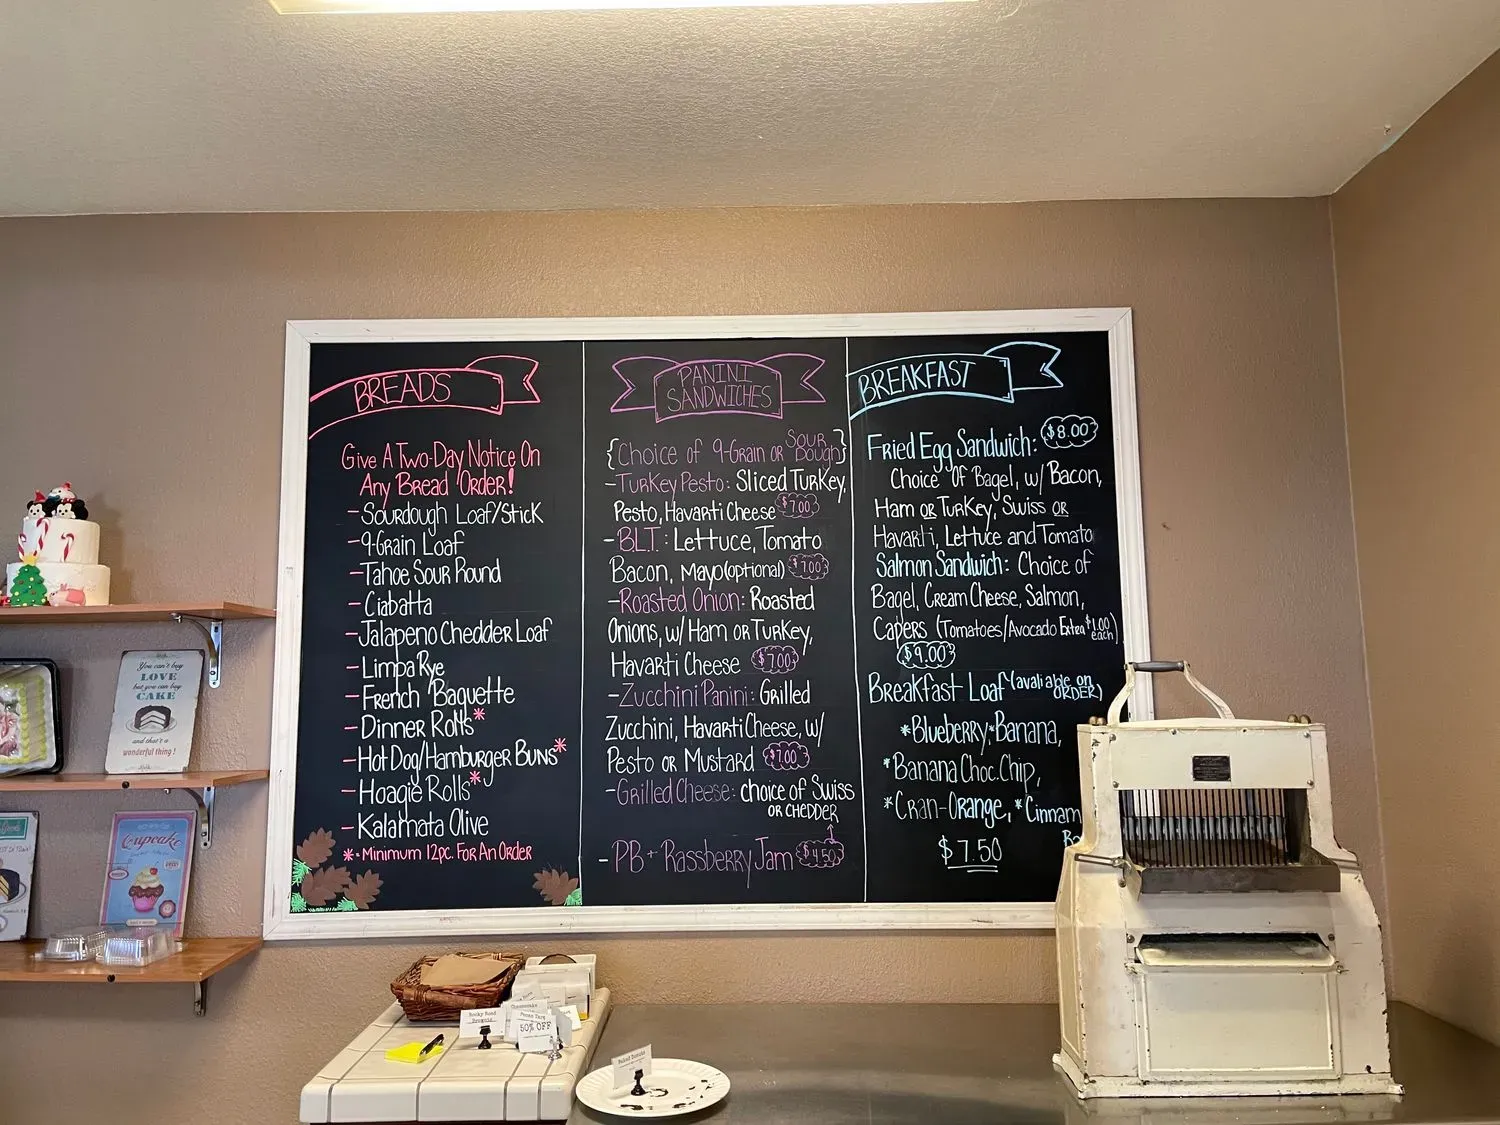 BREADS
Give A Two-Day Notice On
Any Bread Order!
- Sourdough Loaf/Stick
- 9-Grain Loaf
- Tahoe Sour Round
- Ciabatta
- Jalapeno Chedder Loaf
- Limpa Rye
- French Baguette
- Dinner Rolls*
- Hot Dog/Hamburger Buns*
- Hoagie Rolls*
- Kalamata Olive
*-Minimum 12pc. For An Order
PANINI
SANDWICHES
{Choice of 9-Grain or Sour Dough}
- Turkey Pesto: Sliced Turkey,
Pesto, Havarti Cheese $7.00
- B.L.T.: Lettuce, Tomato
Bacon, Mayo (optional) $7.00
- Roasted Onion: Roasted
Onions, w/ Ham or Turkey,
Havarti Cheese $7.00
- Zucchini Panini: Grilled
Zucchini, Havarti Cheese, w/
Pesto or Mustard $7.00
- Grilled Cheese: choice of Swiss
or chedder
- PB + Rassberry Jam $4.50
BREAKFAST
Fried Egg Sandwich: $8.00
Choice Of Bagel, w/ Bacon,
Ham or Turkey, Swiss or
Havarti, Lettuce and Tomato
Salmon Sandwich: Choice of
Bagel, Cream Cheese, Salmon,
Capers (Tomatoes/Avocado Extra $1.00 each)
$9.00
Breakfast Loaf (avaliable on ORDER)
*Blueberry, *Banana,
*Banana Choc. Chip,
*Cran-Orange, *Cinnam
$7.50
You can't buy
LOVE
but you can buy
CAKE
and that's a
wonderful thing!
Cupcake
Rocky Road
Cheesecake
Pecan Tart
50% OFF
Baked Donuts